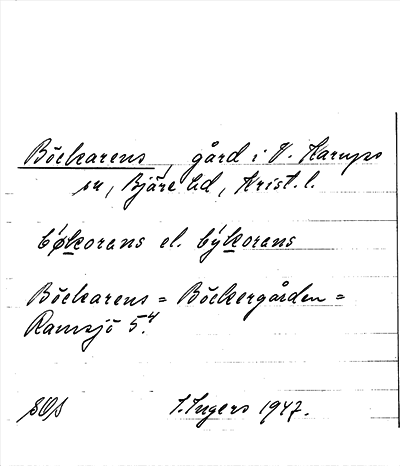 Böckarens, gård i V. Karups
sn, Bjäre hd, Krist. l.
bǿkorans el. býkorans
Böckarens = Böckergården =
Ramsjö 5.⁴
SOS
I. Ingers 1947.